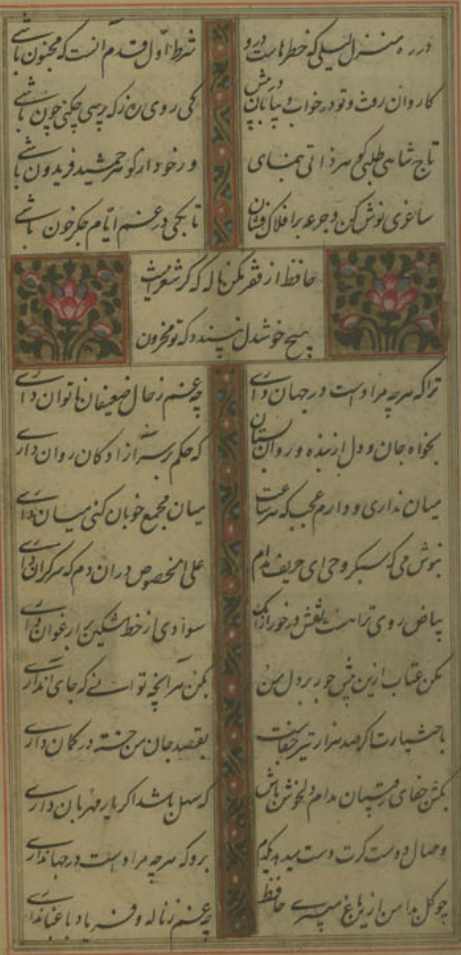 در ره منزل لیلی که خطرهاست درو شرط اول قدم آنست که مجنون باشی
کاروان رفت و تو در خواب و بیابان در پیش کی روی ره ز که پرسی چکنی چون باشی
تاج شاهی طلبی گوهر ذاتی بنمای ور خود از گوهر جمشید فریدون باشی
ساغری نوش کن و جرعه بر افلاک فشان تا بکی در غم ایام جگر خون باشی
حافظ از فقر مکن ناله که گر شعر اینست
هیچ خوشدل نپسندد که تو محزون باشی
ترا که هرچه مرادست در جهان داری چه غم ز حال ضعیفان ناتوان داری
بخواه جان و دل از بنده و روان بستان که حکم بر سر آزادگان روان داری
میان نداری و دارم عجب که هر ساعت میان مجمع خوبان کنی میان داری
بنوش می که سبکروحی ای حریف مدام علی الخصوص در آن دم که سر گران داری
بیاض روی ترا نیست نقش در خور از آنک سوادی از خط مشکین بر ارغوان داری
مکن عتاب ازین بیش و جور بر دل من بکن هر آنچه توانی که جای آن داری
باختیارت اگر صد هزار تیر جفاست بقصد جان من خسته در کمان داری
بکش جفای رقیبان مدام و دلخوش باش که سهل باشد اگر یار مهربان داری
وصال دوست گرت دست میدهد یکدم برو که هرچه مرادست در جهان داری
چو گل بدامن ازین باغ میبری حافظ چه غم ز ناله و فریاد باغبان داری